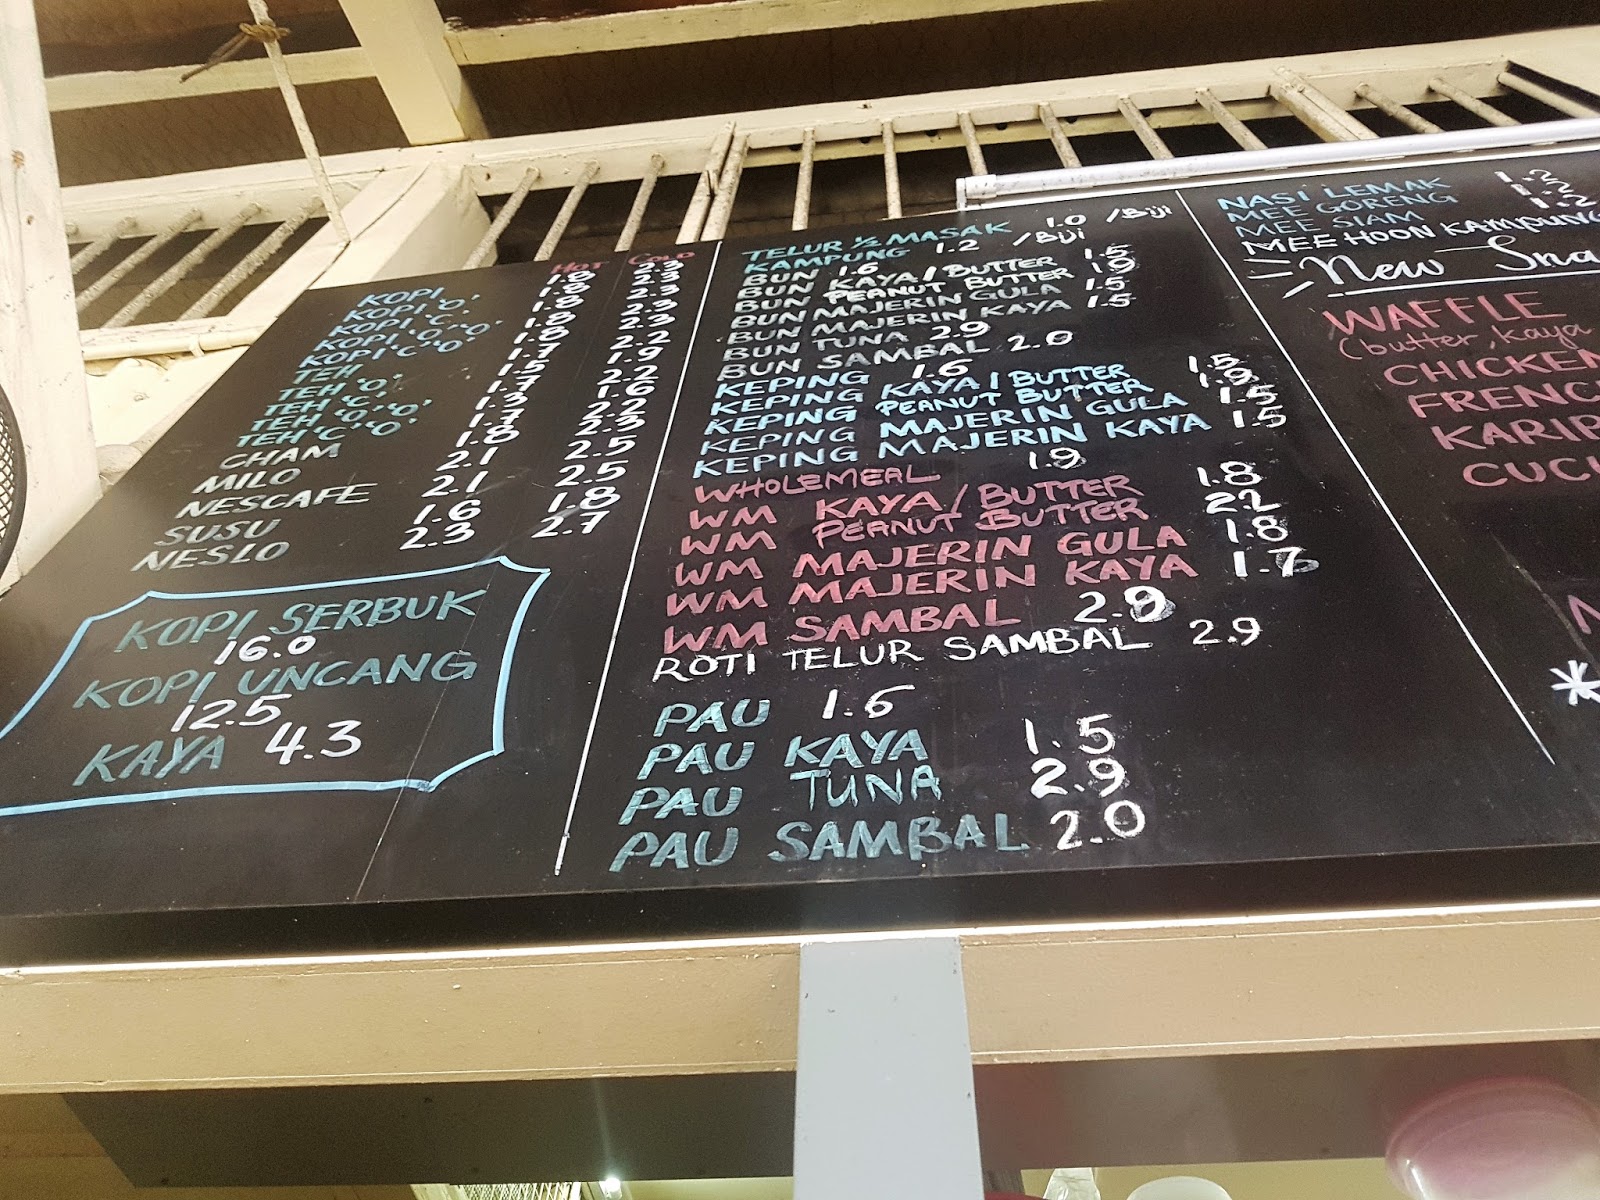 HOT COLD
KOPI 1.8 2.3
KOPI 'O' 1.8 2.3
KOPI 'C' 1.8 2.3
KOPI 'O' 'O' 1.8 2.3
KOPI 'C' 'O' 1.8 2.3
TEH 1.7 2.2
TEH 'O' 1.5 1.9
TEH 'C' 1.7 2.2
TEH 'O' 'O' 1.3 1.6
TEH 'C' 'O' 1.7 2.2
CHAM 1.8 2.3
MILO 2.1 2.5
NESCAFE 2.1 2.5
SUSU 1.6 1.8
NESLO 2.3 2.7
KOPI SERBUK
16.0
KOPI UNCANG
12.5
KAYA 4.3
TELUR ½ MASAK 1.0 /Biji
KAMPUNG 1.2 /Biji
BUN 1.6
BUN KAYA / BUTTER 1.5
BUN PEANUT BUTTER 1.9
BUN MAJERIN GULA 1.5
BUN MAJERIN KAYA 1.5
BUN TUNA 2.9
BUN SAMBAL 2.0
KEPING 1.6
KEPING KAYA / BUTTER 1.5
KEPING PEANUT BUTTER 1.9
KEPING MAJERIN GULA 1.5
KEPING MAJERIN KAYA 1.5
WHOLEMEAL 1.9
WM KAYA / BUTTER 1.8
WM PEANUT BUTTER 2.2
WM MAJERIN GULA 1.8
WM MAJERIN KAYA 1.7
WM SAMBAL 2.9
ROTI TELUR SAMBAL 2.9
PAU 1.6
PAU KAYA 1.5
PAU TUNA 2.9
PAU SAMBAL 2.0
NASI LEMAK 1.2
MEE GORENG 1.2
MEE SIAM 1.2
MEE HOON KAMPUNG
New Sna
WAFFLE
(butter, Kaya
CHICKEN
FRENC
KARIP
CUCU
*